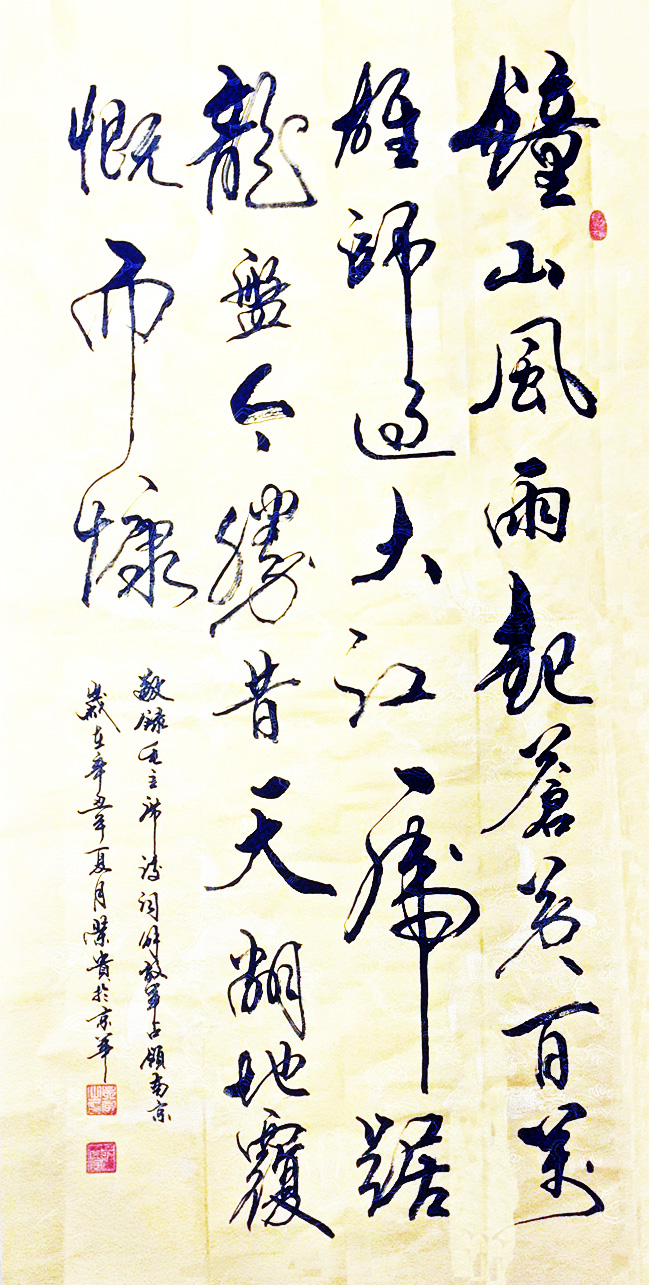 鐘山風雨起蒼黃百萬
雄師過大江虎踞
龍盤今勝昔天翻地覆
慨而慷
敬錄毛主席詩詞解放軍占領南京
歲在辛丑年夏月榮貴於京華